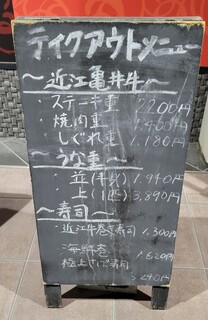 テイクアウトメニュー
～近江亀井牛～
・ステーキ重 2,200円
・焼肉重 1,460円
・しぐれ重 1,180円
～うな重～
・並(半身) 1,940円
・上(1匹) 3,890円
～寿司～
・近江牛巻き寿司 1,300円
・海鮮巻 1,620円
極上さば寿司
3,240円